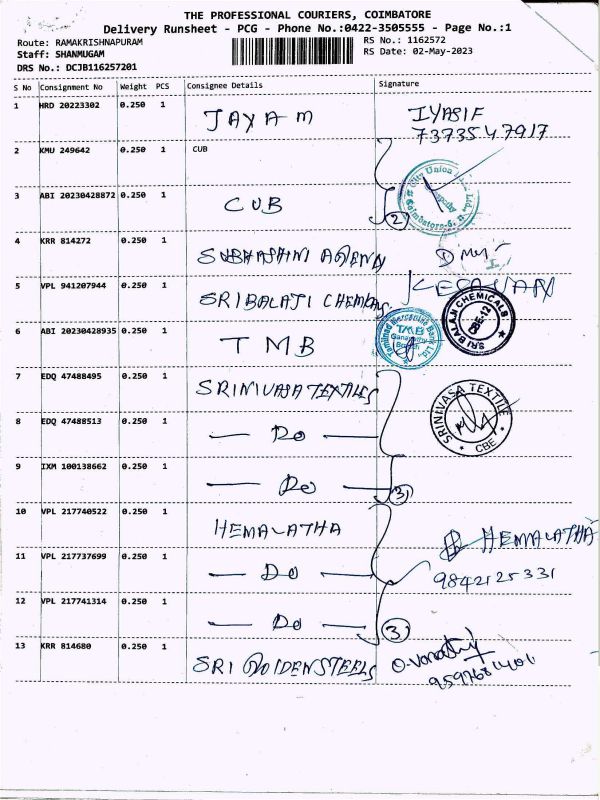 THE PROFESSIONAL COURIERS, COIMBATORE
Delivery Runsheet - PCG - Phone No.:0422-3505555 - Page No.:1
Route: RAMAKRISHNAPURAM
Staff: SHANMUGAM
DRS No.: DCJB116257201
RS No.: 1162572
RS Date: 02-May-2023
S No Consignment No Weight PCS Consignee Details Signature
1 HRD 20223302 0.250 1 JAYAM IYASIF
7373547917
2 KMU 249642 0.250 1 CUB
City Union
3 ABI 20230428872 0.250 1 CUB
2
4 KRR 814272 0.250 1 SUBHASHINI
5 VPL 941207944 0.250 1 SRI BALAJI
SRI BALAJI CHEMICALS
CBE-12
6 ABI 20230428935 0.250 1 TMB
Tamilnad Mercantile Bank Ltd
TMB
Branch
7 EDQ 47488495 0.250 1 SRINIVASA TEXTILES
SRINIVASA TEXTILE
CBE
8 EDQ 47488513 0.250 1 — Do —
9 IXM 100138662 0.250 1 — Do —
3
10 VPL 217740522 0.250 1 HEMALATHA HEMALATHA
11 VPL 217737699 0.250 1 — Do — 9842125331
12 VPL 217741314 0.250 1 — Do —
3
13 KRR 814680 0.250 1 SRI GOLDEN STEELS